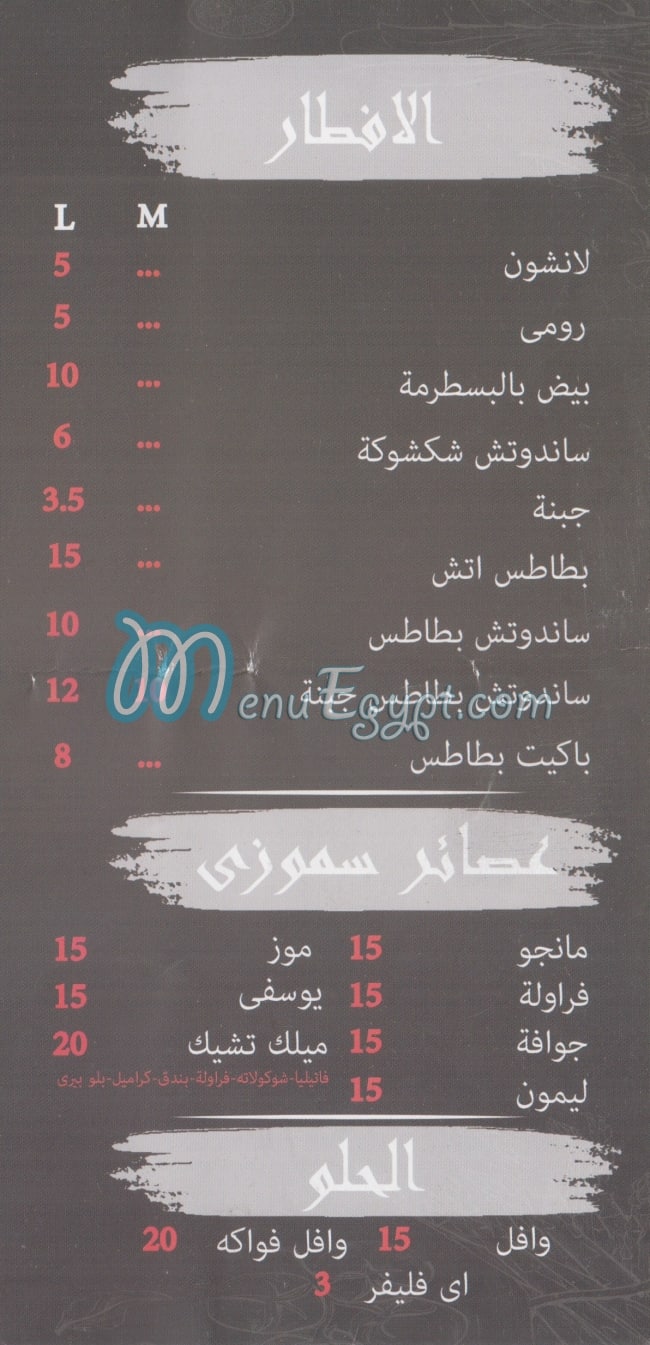 الافطار
M L
لانشون ... 5
رومى ... 5
بيض بالبسطرمة ... 10
ساندوتش شكشوكة ... 6
جبنة ... 3.5
بطاطس اتش ... 15
ساندوتش بطاطس 10
ساندوتش بطاطس جبنة 12
MenuEgypt.com
باكيت بطاطس ... 8
عصائر سموزى
مانجو 15 موز 15
فراولة 15 يوسفى 15
جوافة 15 ميلك تشيك 20
فانيليا-شوكولاته-فراولة-بندق-كراميل-بلو بيرى
ليمون 15
الحلو
وافل 15 وافل فواكه 20
اى فليفر 3